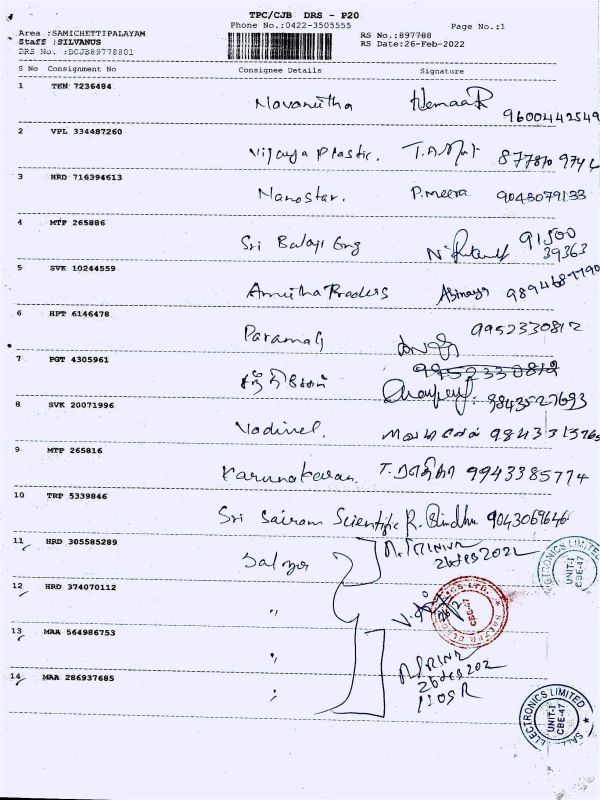 TPC/CJB DRS - P20
Phone No.:0422-3505555
Page No.:1
Area :SAMICHETTIPALAYAM
Staff :SILVANUS
DRS No. :DCJB89778801
RS No.:897788
RS Date:26-Feb-2022
S No Consignment No Consignee Details Signature
1 TEN 7236484 Navanitha HemaaR 9600442549
2 VPL 334487260 Vijaya Plastic. 877870 9746
3 HRD 716394613 Nanostar. P.meera 9043079133
4 MTP 265886 Sri Balaji Eng 91500 39363
5 SVK 10244559 Amutha Traders Abinaya 9894687790
6 HPT 6146478 Paramas 9952330812
7 PGT 4305961 9952330812
9843527693
8 SVK 20071996 Vadivel. 98433
9 MTP 265816 Karunakaran. 9943385774
10 TRP 5339846 Sri Sairam Scientific R. Bindhu 9043069646
11 HRD 305585289 Salzer
12 HRD 374070112 "
13 MAA 564986753 "
14 MAA 286937685 "
ELECTRONICS LIMITED
UNIT-1
CBE-47